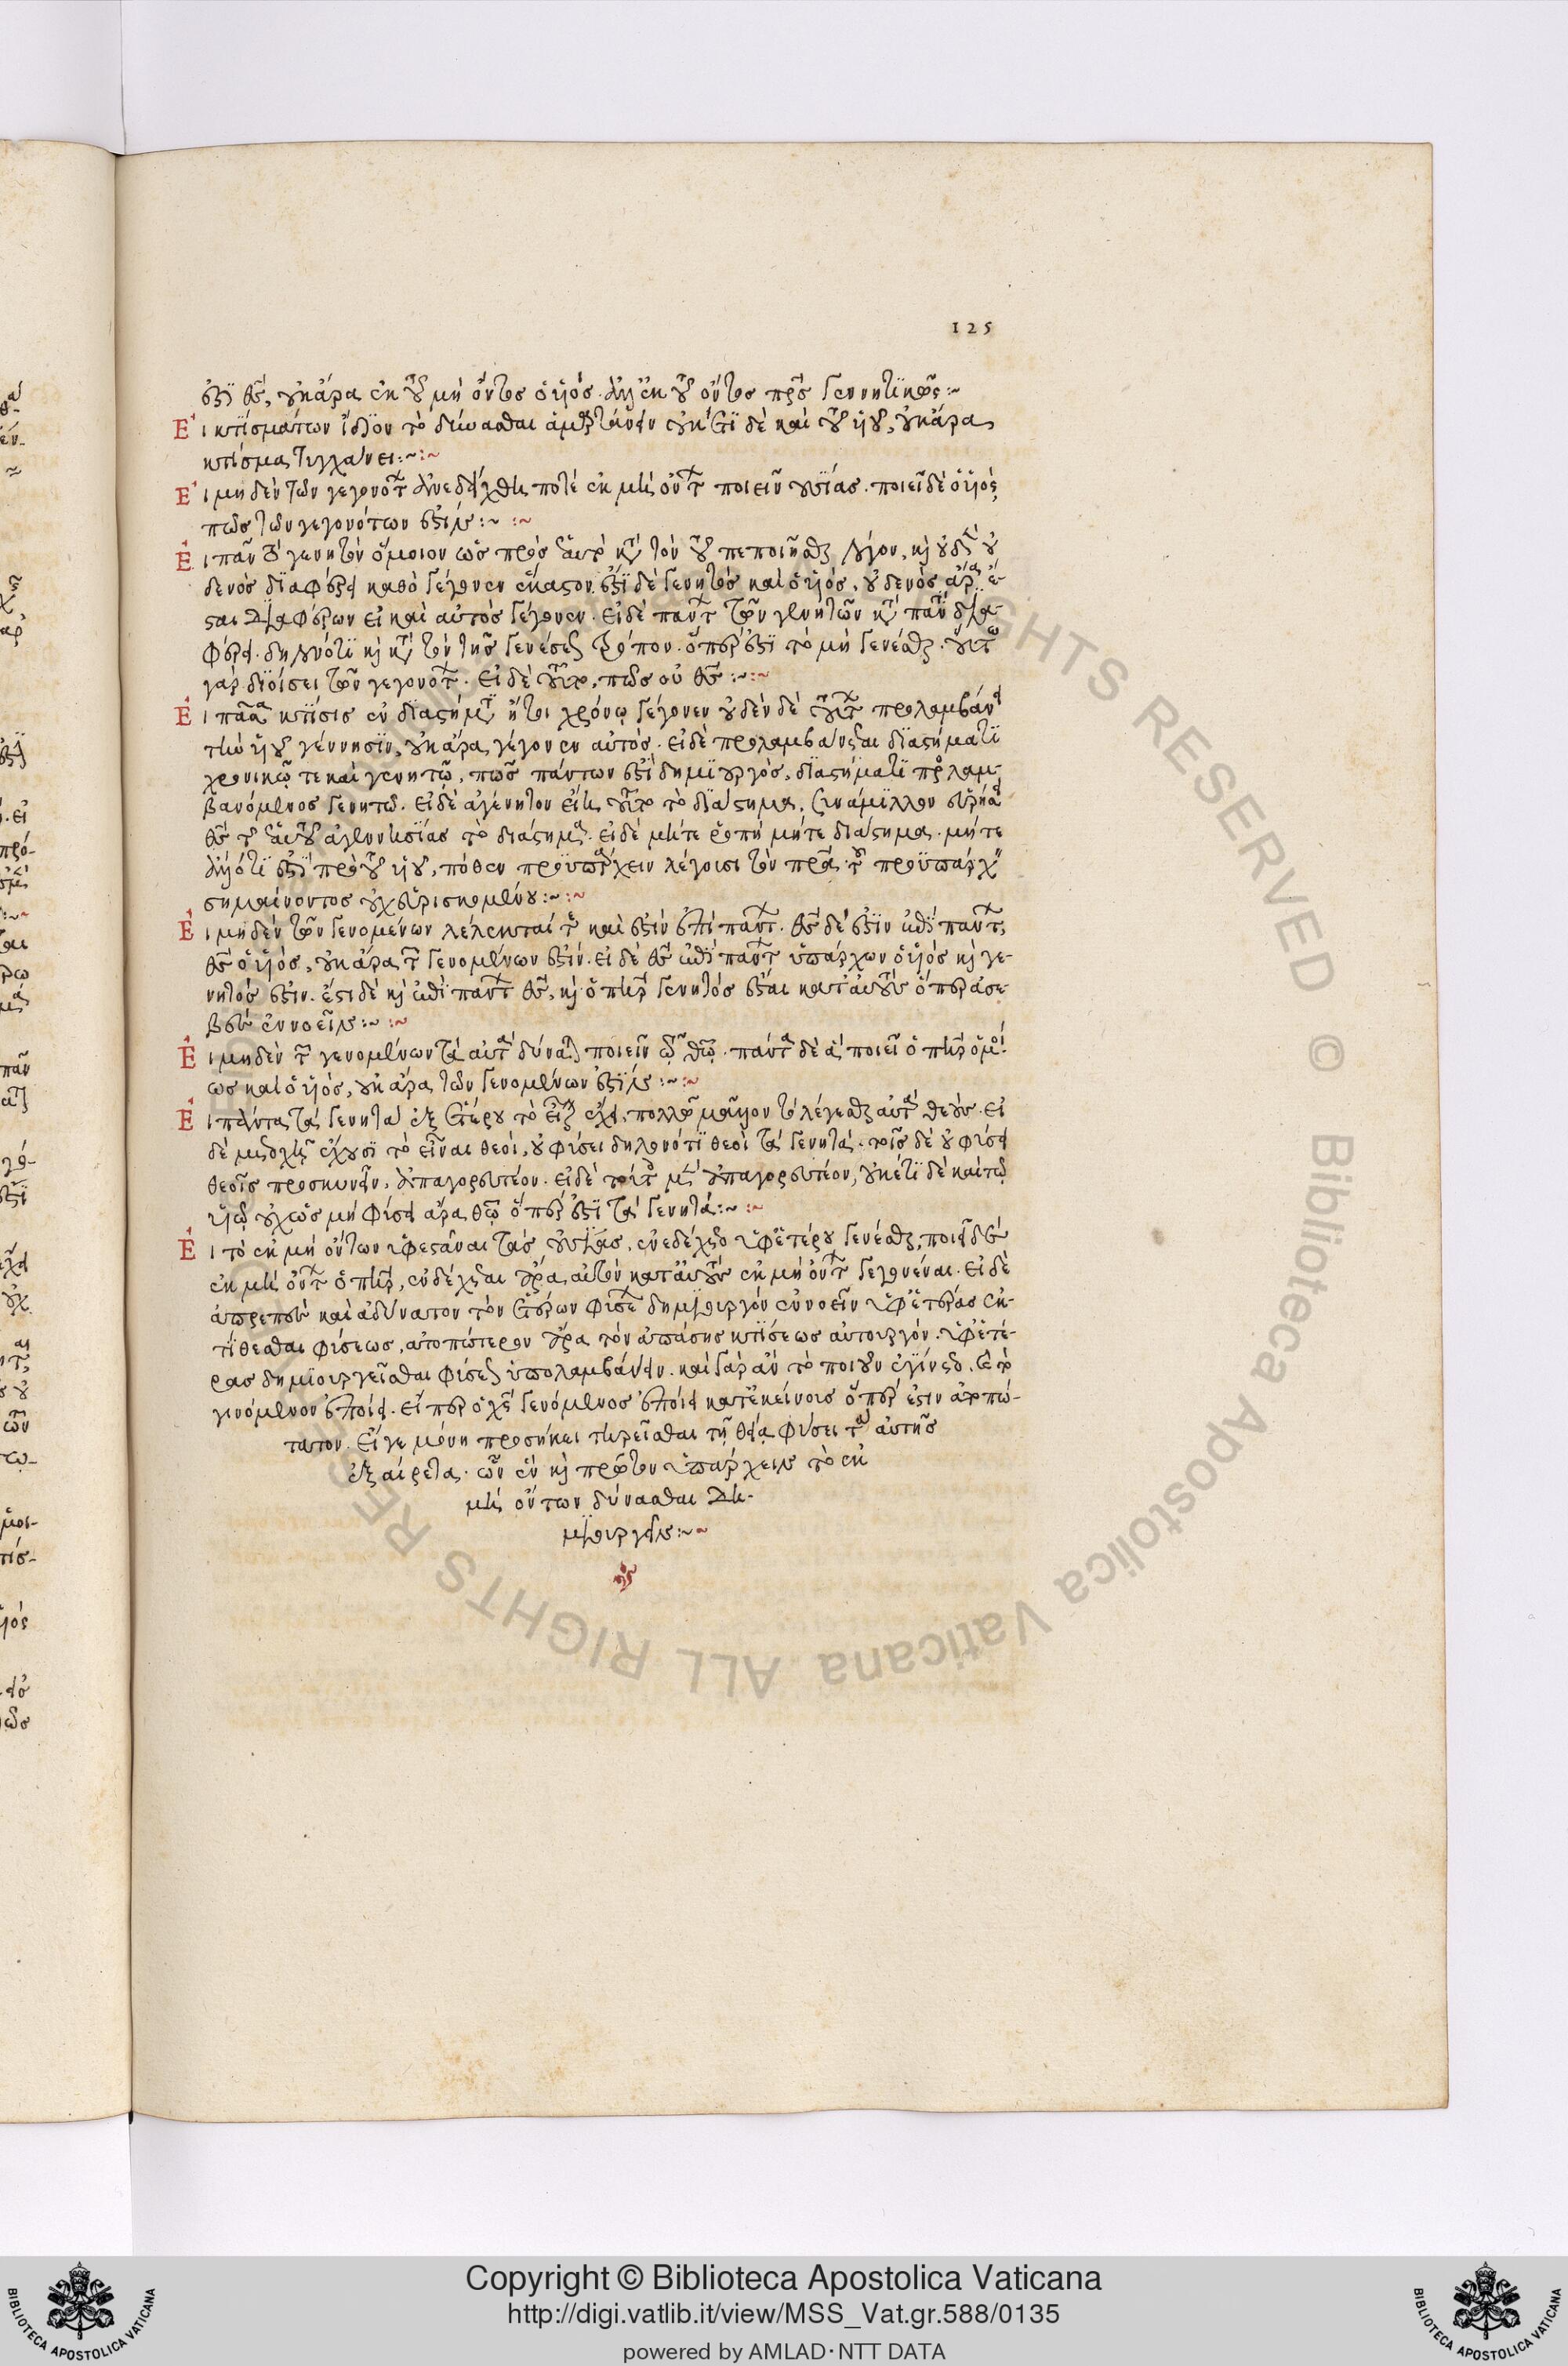 125
ἐστὶ θεός, οὐκ ἄρα ἐκ τοῦ μὴ ὄντος ὁ υἱός. ἀλλ' ἐκ τοῦ ὄντος πατρὸς γεννητικῶς:~
Εἰ κτισμάτων ἴδιον τὸ δύνασθαι ἁμαρτάνειν οὐκ ἔστι δὲ καὶ τοῦ υἱοῦ, οὐκ ἄρα
κτίσμα τυγχάνει:~:~
Εἰ μηδὲν τῶν γεγονότων ἀνεδείχθη ποτὲ ἐκ μὴ ὄντων ποιεῖν οὐσίας. ποιεῖ δὲ ὁ υἱός,
πῶς τῶν γεγονότων ἐστίν:~ :~
Εἰ πᾶν τὸ γενητὸν ὅμοιον ὡς πρὸς ἑαυτὸ κατὰ τὸν τοῦ πεποιῆσθαι λόγον, καὶ οὐδὲν οὐ
δενὸς διαφέρει καθὸ γέγονεν ἕκαστον. ἔστι δὲ γενητὸς καὶ ὁ υἱός, οὐδενὸς ἄρα ἔ-
σται διαφέρων εἰ καὶ αὐτὸς γέγονεν. Εἰ δὲ πάντων τῶν γενητῶν κατὰ πάντα δια-
φέρει. δηλονότι καὶ κατὰ τὸν τῆς γενέσεως τρόπον. ὅπερ ἐστὶ τὸ μὴ γενέσθαι. οὕτω
γὰρ διοίσει τῶν γεγονότων. Εἰ δὲ τοῦτο, πῶς οὐ θεός:~:~
Εἰ πᾶσα κτίσις ἐν διαστήματι ἤτοι χρόνῳ γέγονεν οὐδὲν δὲ τούτων προλαμβάνει
τὴν υἱοῦ γέννησιν, οὐκ ἄρα γέγονεν αὐτός. εἰ δὲ προλαμβάνεται διαστήματι
χρονικῷ τε καὶ γενητῷ, πῶς πάντων ἐστὶ δημιουργός, διαστήματι προλαμ-
βανόμενος γενητῷ. Εἰ δὲ ἀγένητον εἴη τοῦτο τὸ διάστημα, συνάμιλλον εὑρήσει
θεὸς τῆς ἑαυτοῦ ἀγεννησίας τὸ διάστημα. εἰ δὲ μήτε ῥοπὴ μήτε διάστημα. μήτε
ἄλλό τι ἐστὶ πρὸ τοῦ υἱοῦ, πόθεν προϋπάρχειν λέγοισι τὸν πατέρα. τοῦ προϋπάρχειν
σημαίνοντος οὐχ εὑρισκομένου:~:~
Εἰ μηδὲν τῶν γενομένων λέλεκταί τε καὶ ἐστὶν ἐπὶ πάντων. θεὸς δέ ἐστιν ἐπὶ πάντων
θεὸς ὁ υἱός, οὐκ ἄρα τῶν γενομένων ἐστίν. εἰ δὲ θεὸς ἐπὶ πάντων ὑπάρχων ὁ υἱὸς καὶ γε-
νητός ἐστιν. ἔστι δὲ καὶ ἐπὶ πάντων θεός, καὶ ὁ πατὴρ γενητὸς ἔσται κατ' αὐτοὺς ὅπερ ἀσε-
βὲς ἐννοεῖν:~ :~
Εἰ μηδὲν τῶν γενομένων τὰ αὐτὰ δύναται ποιεῖν τῷ θεῷ. πάντα δὲ ἃ ποιεῖ ὁ πατὴρ ὁμοί-
ως καὶ ὁ υἱός, οὐκ ἄρα τῶν γενομένων ἐστίν:~:~
Εἰ πάντα τὰ γενητὰ ἐξ ἑτέρου τὸ εἶναι ἔχει, πολλῷ μᾶλλον τὸ λέγεσθαι αὐτὰ θεούς. Εἰ
δὲ μετοχῇ ἔχουσι τὸ εἶναι θεοί, οὐ φύσει δηλονότι θεοὶ τὰ γενητά. τοῖς δὲ οὐ φύσει
θεοῖς προσκυνεῖν, ἀπαγορευτέον. Εἰ δὲ τούτοις μὲν ἀπαγορευτέον, οὐκέτι δὲ καὶ τῷ
υἱῷ οὐχ ὡς μὴ φύσει ἄρα θεῷ ὅπερ ἐστὶ τὰ γενητά:~ :~
Εἰ τὸ ἐκ μὴ ὄντων ὑφεστάναι τὰς οὐσίας, ἐνεδέχετο ὑφ' ἑτέρου γενέσθαι, ποιεῖ δὲ
ἐκ μὴ ὄντων ὁ πατήρ, ἐνδέχεται ἄρα αὐτὸν κατ' αὐτοὺς ἐκ μὴ ὄντων γεγονέναι. Εἰ δὲ
ἀπρεπὲς καὶ ἀδύνατον τὸν ἑτέρων φύσεων δημιουργὸν ἐννοεῖν ὑφ' ἑτέρας ἐκ-
τίθεσθαι φύσεως, ἀτοπώτερον ἄρα τὸν ἁπάσης κτίσεως αὐτουργόν. ὑφ' ἑτέ-
ρας δημιουργεῖσθαι φύσεως ὑπολαμβάνειν. καὶ γὰρ ἂν τὸ ποιοῦν ἐγίνετο, καὶ τὸ
γινόμενον ἐποίει. Εἴπερ ὁ χριστὸς γενόμενος ἐποίει κατ' ἐκείνους ὅπερ ἐστὶν ἀτοπώ-
τατον. Εἴ γε μόνῃ προσήκει τηρεῖσθαι τῇ θείᾳ φύσει τὰ αὐτῆς
ἐξαίρετα. ὧν ἓν καὶ πρῶτον ὑπάρχειν τὸ ἐκ
μὴ ὄντων δύνασθαι δη-
μιουργεῖν:~~
Copyright © Biblioteca Apostolica Vaticana
http://digi.vatlib.it/view/MSS_Vat.gr.588/0135
powered by AMLAD·NTT DATA
BIBLIOTECA APOSTOLICA VATICANA
BIBLIOTECA APOSTOLICA VATICANA
© Biblioteca Apostolica Vaticana ALL RIGHTS RESERVED